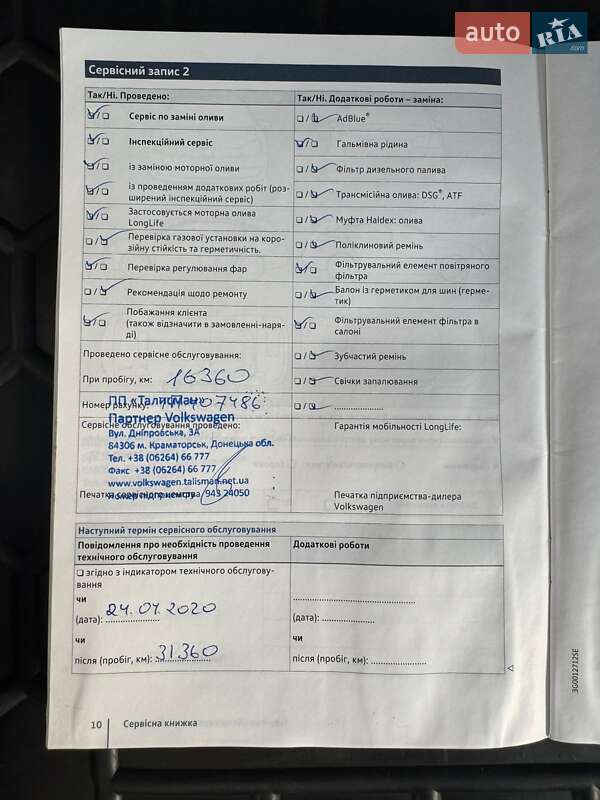 auto RIA.com
Сервісний запис 2
Так/Ні. Проведено:
Сервіс по заміні оливи
Інспекційний сервіс
із заміною моторної оливи
із проведенням додаткових робіт (роз-
ширений інспекційний сервіс)
Застосовується моторна олива
LongLife
Перевірка газової установки на коро-
зійну стійкість та герметичність.
Перевірка регулювання фар
Рекомендація щодо ремонту
Побажання клієнта
(також відзначити в замовленні-наря-
ді)
Проведено сервісне обслуговування:
При пробігу, км: 16360
Номер рахунку:
ПП «Талисман»
Партнер Volkswagen
Сервісне обслуговування проведено:
Вул. Дніпровська, 3А
84306 м. Краматорськ, Донецька обл.
Тел. +38 (06264) 66 777
Факс +38 (06264) 66 777
www.volkswagen.talisman.net.ua
Печатка сервісного підприємства 943 24050
Так/Ні. Додаткові роботи – заміна:
AdBlue®
Гальмівна рідина
Фільтр дизельного палива
Трансмісійна олива: DSG®, ATF
Муфта Haldex: олива
Поліклиновий ремінь
Фільтрувальний елемент повітряного
фільтра
Балон із герметиком для шин (герме-
тик)
Фільтрувальний елемент фільтра в
салоні
Зубчастий ремінь
Свічки запалювання
....................
Гарантія мобільності LongLife:
Печатка підприємства-дилера
Volkswagen
Наступний термін сервісного обслуговування
Повідомлення про необхідність проведення
технічного обслуговування
згідно з індикатором технічного обслугову-
вання
чи
(дата): 24.04.2020
чи
після (пробіг, км): 31360
Додаткові роботи
чи
(дата): ....................
чи
після (пробіг, км): ....................
10 Сервісна книжка
3G0012712SE